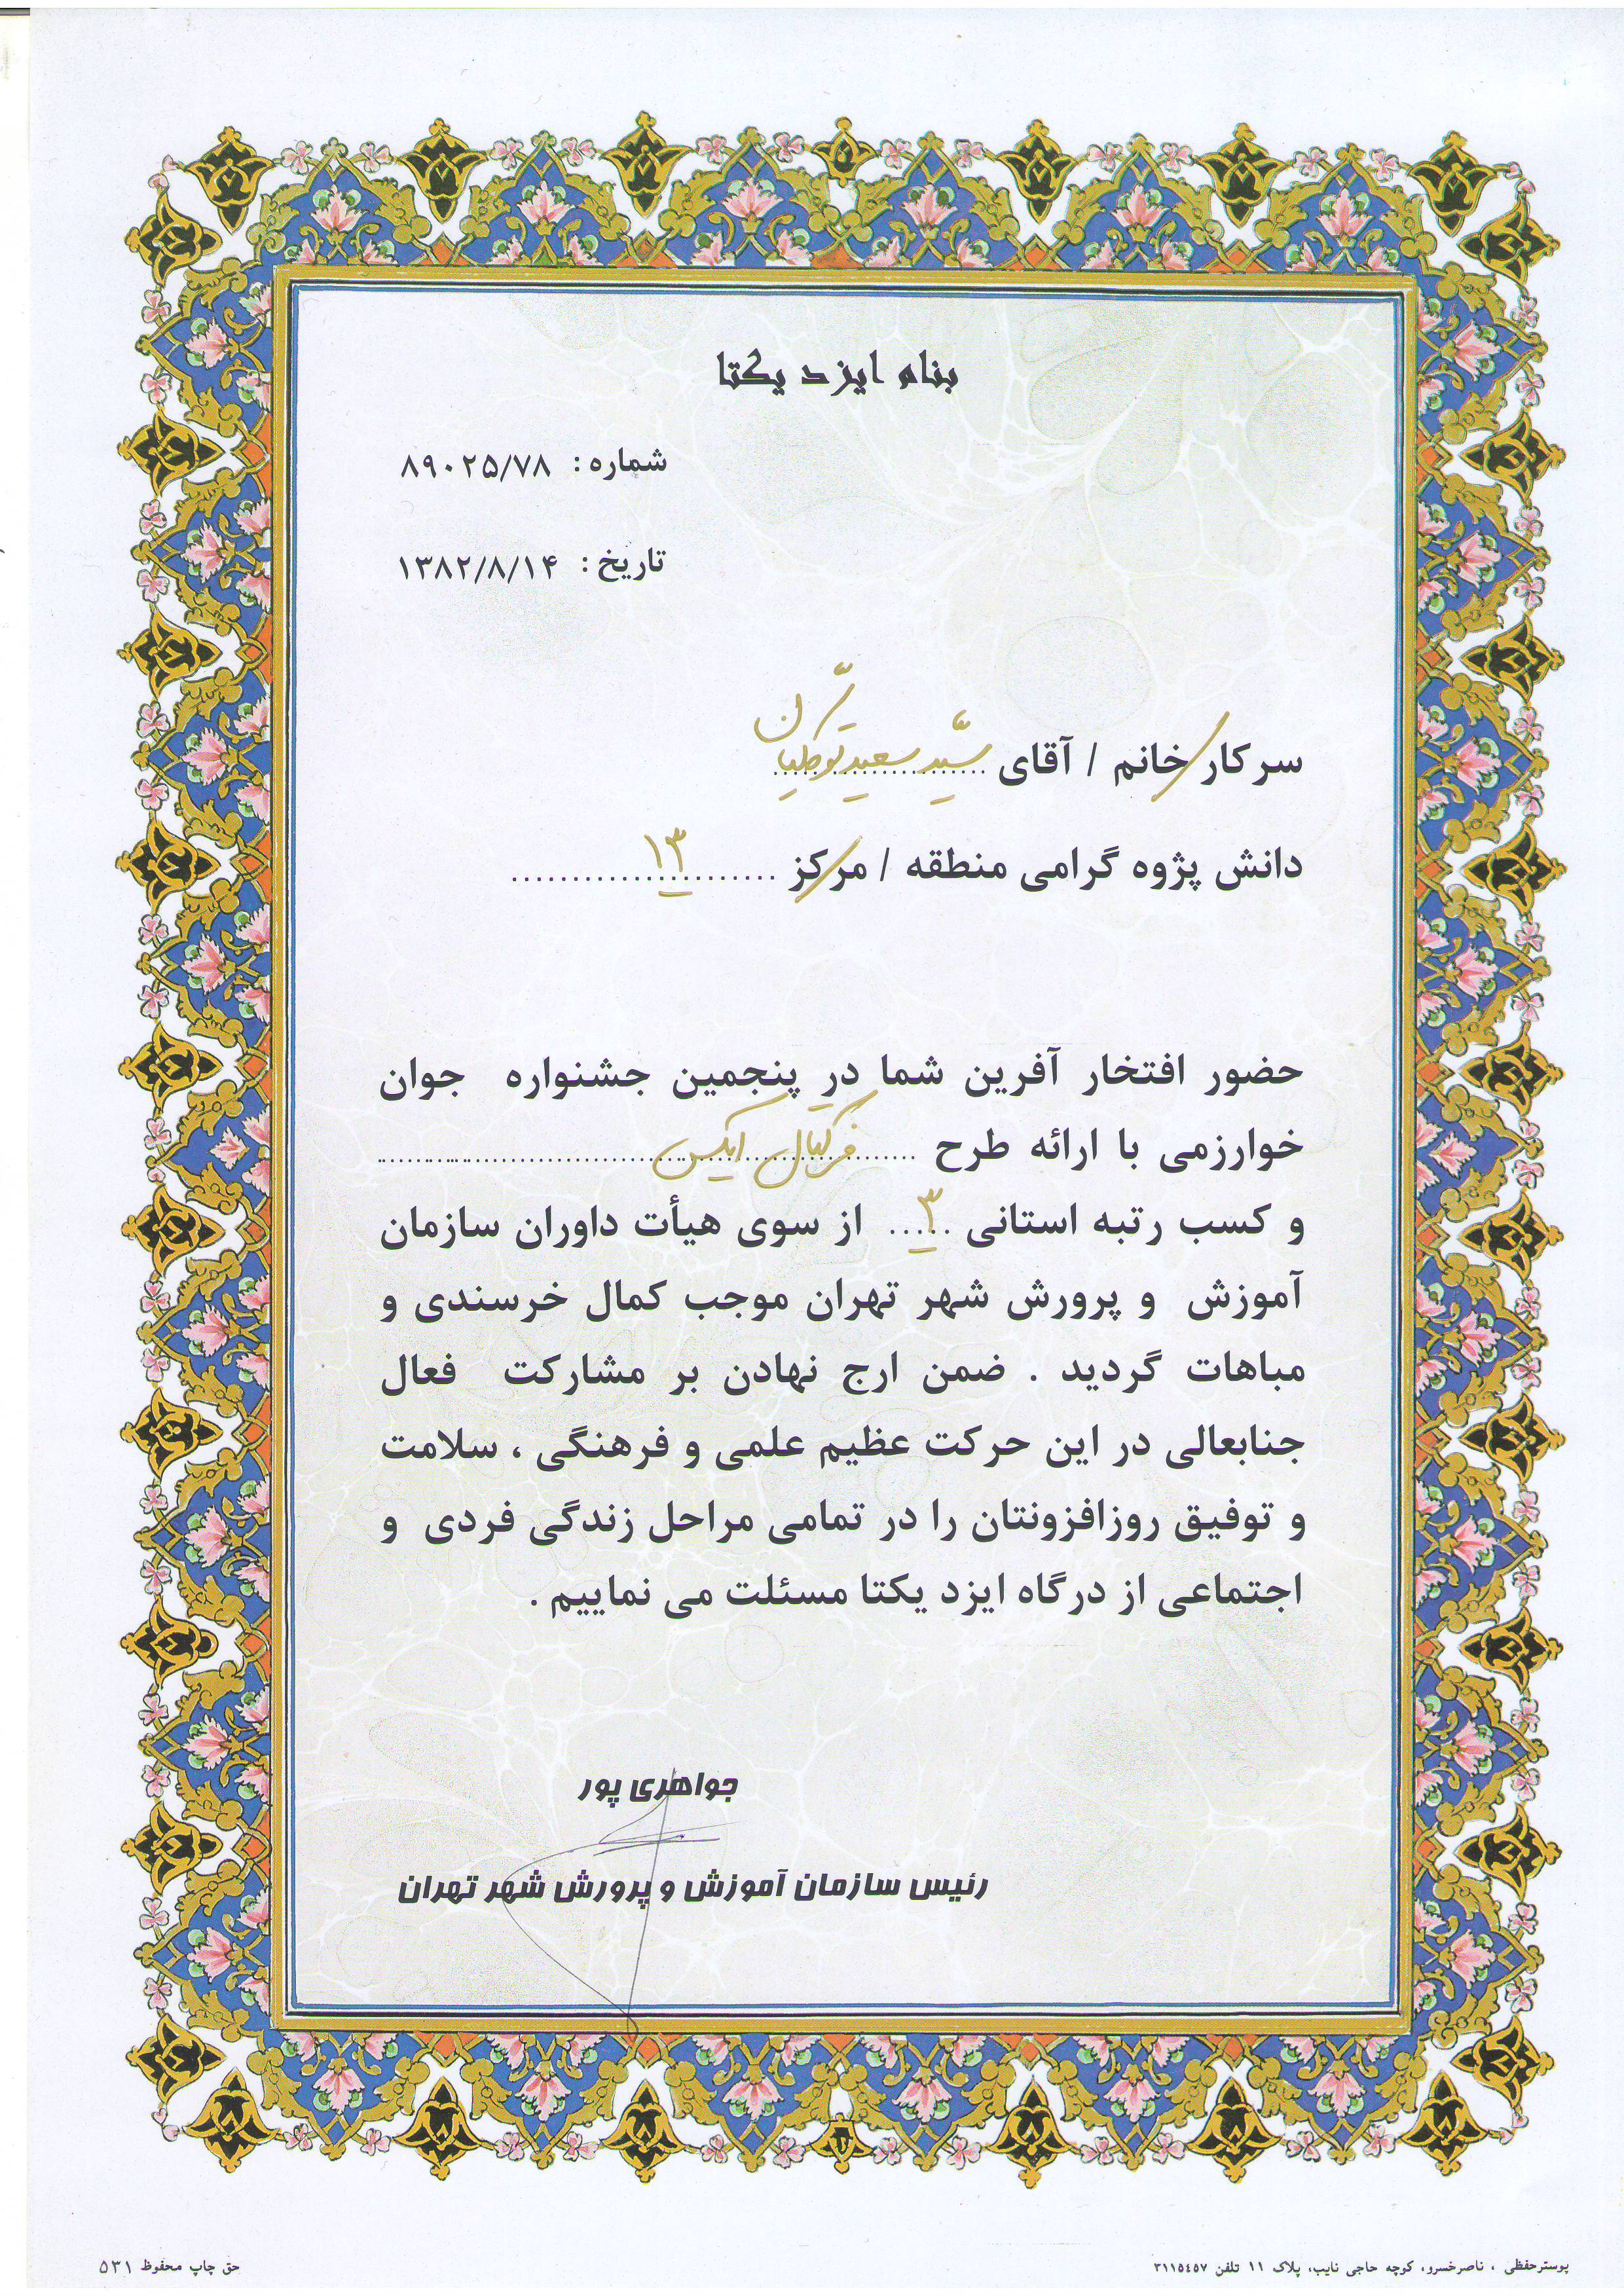 بنام ایزد یکتا
شماره : ۸۹۰۲۵/۷۸
تاریخ : ۱۳۸۲/۸/۱۴
سرکار خانم / آقای سیّد سعید توکلیان
دانش پژوه گرامی منطقه / مرکز ۱۳
حضور افتخار آفرین شما در پنجمین جشنواره جوان
خوارزمی با ارائه طرح فرکتال ایکس
و کسب رتبه استانی ۳ از سوی هیأت داوران سازمان
آموزش و پرورش شهر تهران موجب کمال خرسندی و
مباهات گردید . ضمن ارج نهادن بر مشارکت فعال
جنابعالی در این حرکت عظیم علمی و فرهنگی ، سلامت
و توفیق روزافزونتان را در تمامی مراحل زندگی فردی و
اجتماعی از درگاه ایزد یکتا مسئلت می نماییم .
جواهری پور
رئیس سازمان آموزش و پرورش شهر تهران
پوسترحفظی ، ناصرخسرو، کوچه حاجی نایب، پلاک ۱۱ تلفن ۳۱۱۵٤۵۷
حق چاپ محفوظ ۵۳۱